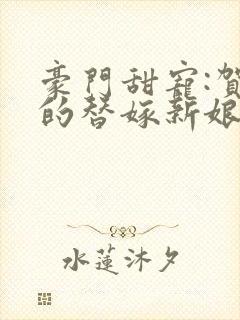 豪門甜寵:賀
的替嫁新娘
水蓮沐夕